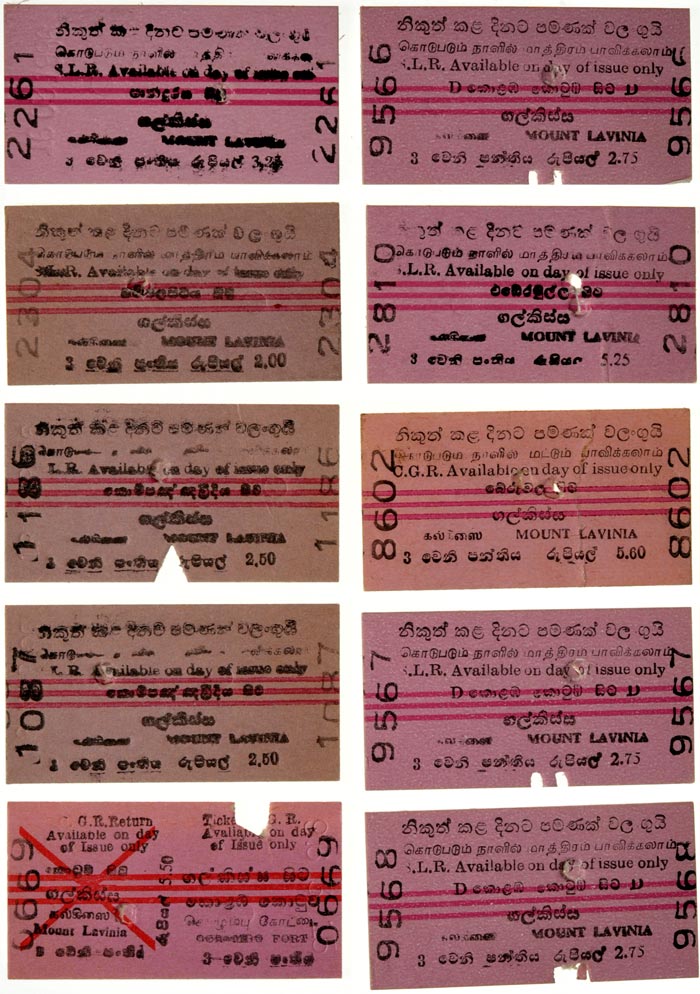 2261
නිකුත් කළ දිනට පමණක් වලංගුයි
கொடுபடும் நாளில் மாத்திரம்
S.L.R. Available on day of issue only
ගල්කිස්ස
MOUNT LAVINIA
3 වෙනි පන්තිය රුපියල් 3.25
2261
9566
නිකුත් කළ දිනට පමණක් වල ගුයි
கொடுபடும் நாளில் மாத்திரம் பாவிக்கலாம்
S.L.R. Available on day of issue only
D කොළඹ කොටුව සිට D
ගල්කිස්ස
MOUNT LAVINIA
3 වෙනි පන්තිය රුපියල් 2.75
9566
2304
නිකුත් කළ දිනට පමණක් වල ගුයි
கொடுபடும் நாளில் மாத்திரம் பாவிக்கலாம்
S.L.R. Available on day of issue only
සිට
ගල්කිස්ස
MOUNT LAVINIA
3 වෙනි පංතිය රුපියල් 2.00
2304
2810
නිකුත් කළ දිනට පමණක් වල ගුයි
கொடுபடும் நாளில் மாத்திரம் பாவிக்கலாம்
S.L.R. Available on day of issue only
එඬේරමුල්ල සිට
ගල්කිස්ස
MOUNT LAVINIA
3 වෙනි පංතිය රුපියල් 5.25
2810
1186
නිකුත් කළ දිනට පමණක් වලංගුයි
L.R. Available on day of issue only
කොම්පඤ්ඤවීදිය සිට
ගල්කිස්ස
MOUNT LAVINIA
3 වෙනි පංතිය රුපියල් 2.50
1186
8602
නිකුත් කළ දිනට පමණක් වලංගුයි
கொடுபடும் நாளில் மட்டும் பாவிக்கலாம்
C.G.R. Available on day of issue only
බේරුවල සිට
ගල්කිස්ස
கல்கிஸை MOUNT LAVINIA
3 වෙනි පන්තිය රුපියල් 5.60
8602
1087
නිකුත් කළ දිනට පමණක් වලංගුයි
L.R. Available on day of issue only
කොම්පඤ්ඤවීදිය සිට
ගල්කිස්ස
MOUNT LAVINIA
3 වෙනි පංතිය රුපියල් 2.50
1087
9567
නිකුත් කළ දිනට පමණක් වල ගුයි
கொடுபடும் நாளில் மாத்திரம் பாவிக்கலாம்
S.L.R. Available on day of issue only
D කොළඹ කොටුව සිට D
ගල්කිස්ස
MOUNT LAVINIA
3 වෙනි පන්තිය රුපියල් 2.75
9567
0669
C. G. R. Return
Available on day
of Issue only
කොටුව සිට
ගල්කිස්ස
கல்கிஸை
Mount Lavinia
3 වෙනි පංතිය
රුපියල් 5.50
Ticket G. R.
Available on day
of Issue only
ගල්කිස්ස සිට
කොළඹ කොටුව
கொழும்பு கோட்டை
COLOMBO FORT
3 වෙනි පංතිය
0669
9568
නිකුත් කළ දිනට පමණක් වල ගුයි
கொடுபடும் நாளில் மாத்திரம் பாவிக்கலாம்
S.L.R. Available on day of issue only
D කොළඹ කොටුව සිට D
ගල්කිස්ස
MOUNT LAVINIA
3 වෙනි පන්තිය රුපියල් 2.75
9568